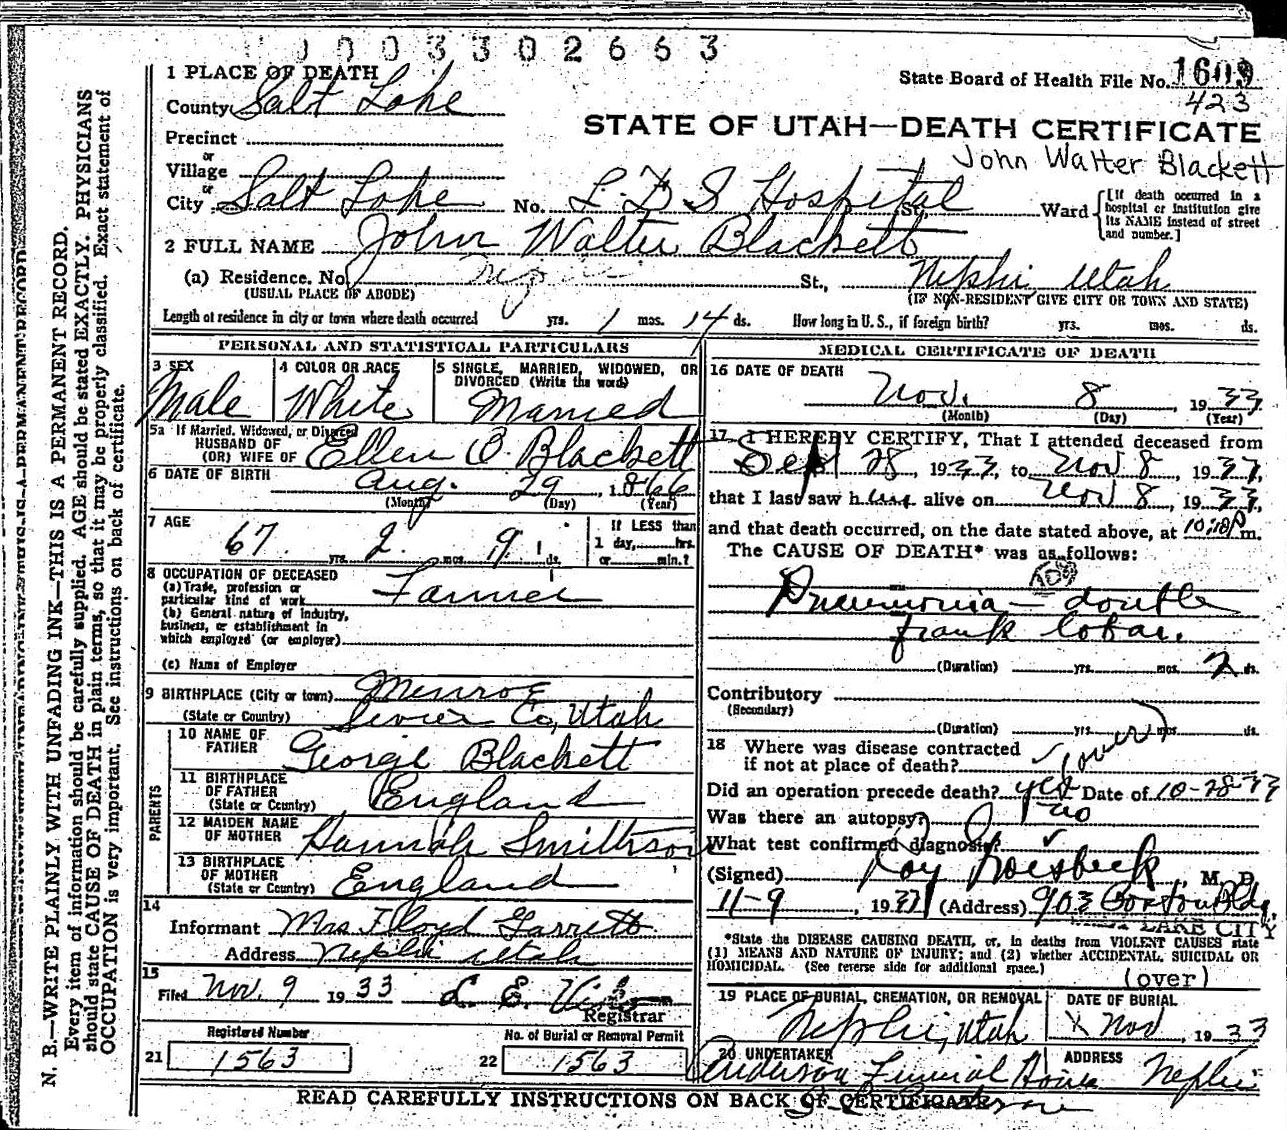 0003302663
1 PLACE OF DEATH
State Board of Health File No. 1609
423
County Salt Lake
STATE OF UTAH—DEATH CERTIFICATE
Precinct
John Walter Blackett
or
Village
or
City Salt Lake No. L. D S Hospital St. Ward [If death occurred in a hospital or institution give its NAME instead of street and number.]
2 FULL NAME John Walter Blackett
(a) Residence. No. St., Nephi, Utah
(USUAL PLACE OF ABODE) (IF NON-RESIDENT GIVE CITY OR TOWN AND STATE)
Length of residence in city or town where death occurred yrs. 1 mos. 14 ds. How long in U. S., if foreign birth? yrs. mos. ds.
PERSONAL AND STATISTICAL PARTICULARS
3 SEX Male
4 COLOR OR RACE White
5 SINGLE, MARRIED, WIDOWED, OR DIVORCED (Write the word) Married
5a If Married, Widowed, or Divorced
HUSBAND OF
(OR) WIFE OF Ellen O. Blackett
6 DATE OF BIRTH Aug. 29, 1866
(Month) (Day) (Year)
7 AGE
67 yrs. 2 mos. 9 ds.
If LESS than
1 day, hrs.
or min.?
8 OCCUPATION OF DECEASED
(a) Trade, profession or
particular kind of work Farmer
(b) General nature of Industry,
business, or establishment in
which employed (or employer)
(c) Name of Employer
9 BIRTHPLACE (City or town) Monroe
(State or Country) Sevier Co, Utah
PARENTS
10 NAME OF FATHER George Blackett
11 BIRTHPLACE OF FATHER (State or Country) England
12 MAIDEN NAME OF MOTHER Hannah Smithson
13 BIRTHPLACE OF MOTHER (State or Country) England
14
Informant Mrs Floyd Garrett
Address Nephi Utah
15
Filed Nov. 9 1933 L. E.
Registrar
Registered Number
21 1563
No. of Burial or Removal Permit
22 1563
MEDICAL CERTIFICATE OF DEATH
16 DATE OF DEATH
Nov. 8, 1933
(Month) (Day) (Year)
17 I HEREBY CERTIFY, That I attended deceased from
28 1933, to Nov 8, 1933,
that I last saw him alive on Nov 8, 1933,
and that death occurred, on the date stated above, at m.
The CAUSE OF DEATH* was as follows:
108
Pneumonia — double
frank lobar.
(Duration) yrs. mos. 2 ds.
Contributory
(Secondary)
(Duration) yrs. mos. ds.
18 Where was disease contracted
if not at place of death?
(over)
Did an operation precede death? yes Date of 10-28-33
Was there an autopsy? no
What test confirmed diagnosis?
(Signed) Roy Groesbeck, M. D.
11-9, 1933 (Address) 903 Boston Bldg.
LAKE CITY
*State the DISEASE CAUSING DEATH, or, in deaths from VIOLENT CAUSES state
(1) MEANS AND NATURE OF INJURY; and (2) whether ACCIDENTAL, SUICIDAL OR
HOMICIDAL. (See reverse side for additional space.)
(over)
19 PLACE OF BURIAL, CREMATION, OR REMOVAL
Nephi, Utah
DATE OF BURIAL
X Nov, 1933
20 UNDERTAKER
Anderson Funeral Home
ADDRESS
Nephi
READ CAREFULLY INSTRUCTIONS ON BACK OF CERTIFICATE
N. B.—WRITE PLAINLY WITH UNFADING INK—THIS IS A PERMANENT RECORD.
Every item of information should be carefully supplied. AGE should be stated EXACTLY. PHYSICIANS
should state CAUSE OF DEATH in plain terms, so that it may be properly classified. Exact statement of
OCCUPATION is very important. See instructions on back of certificate.